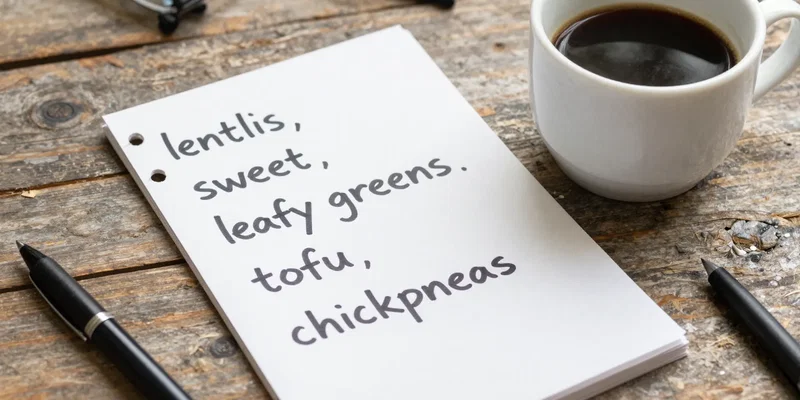 lentlis,
sweet,
leafy greens.
tofu,
chickpneas